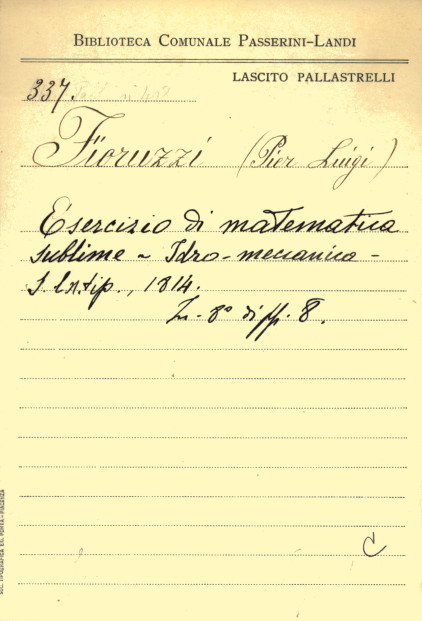 BIBLIOTECA COMUNALE PASSERINI-LANDI
LASCITO PALLASTRELLI
337.
Fioruzzi (Pier Luigi)
Esercizio di matematica
sublime ~ Idro-meccanica -
S. l. n. tip., 1814.
In-8° di pp. 8.
C
SOC. TIPOGRAFICA ED. PORTA-PIACENZA